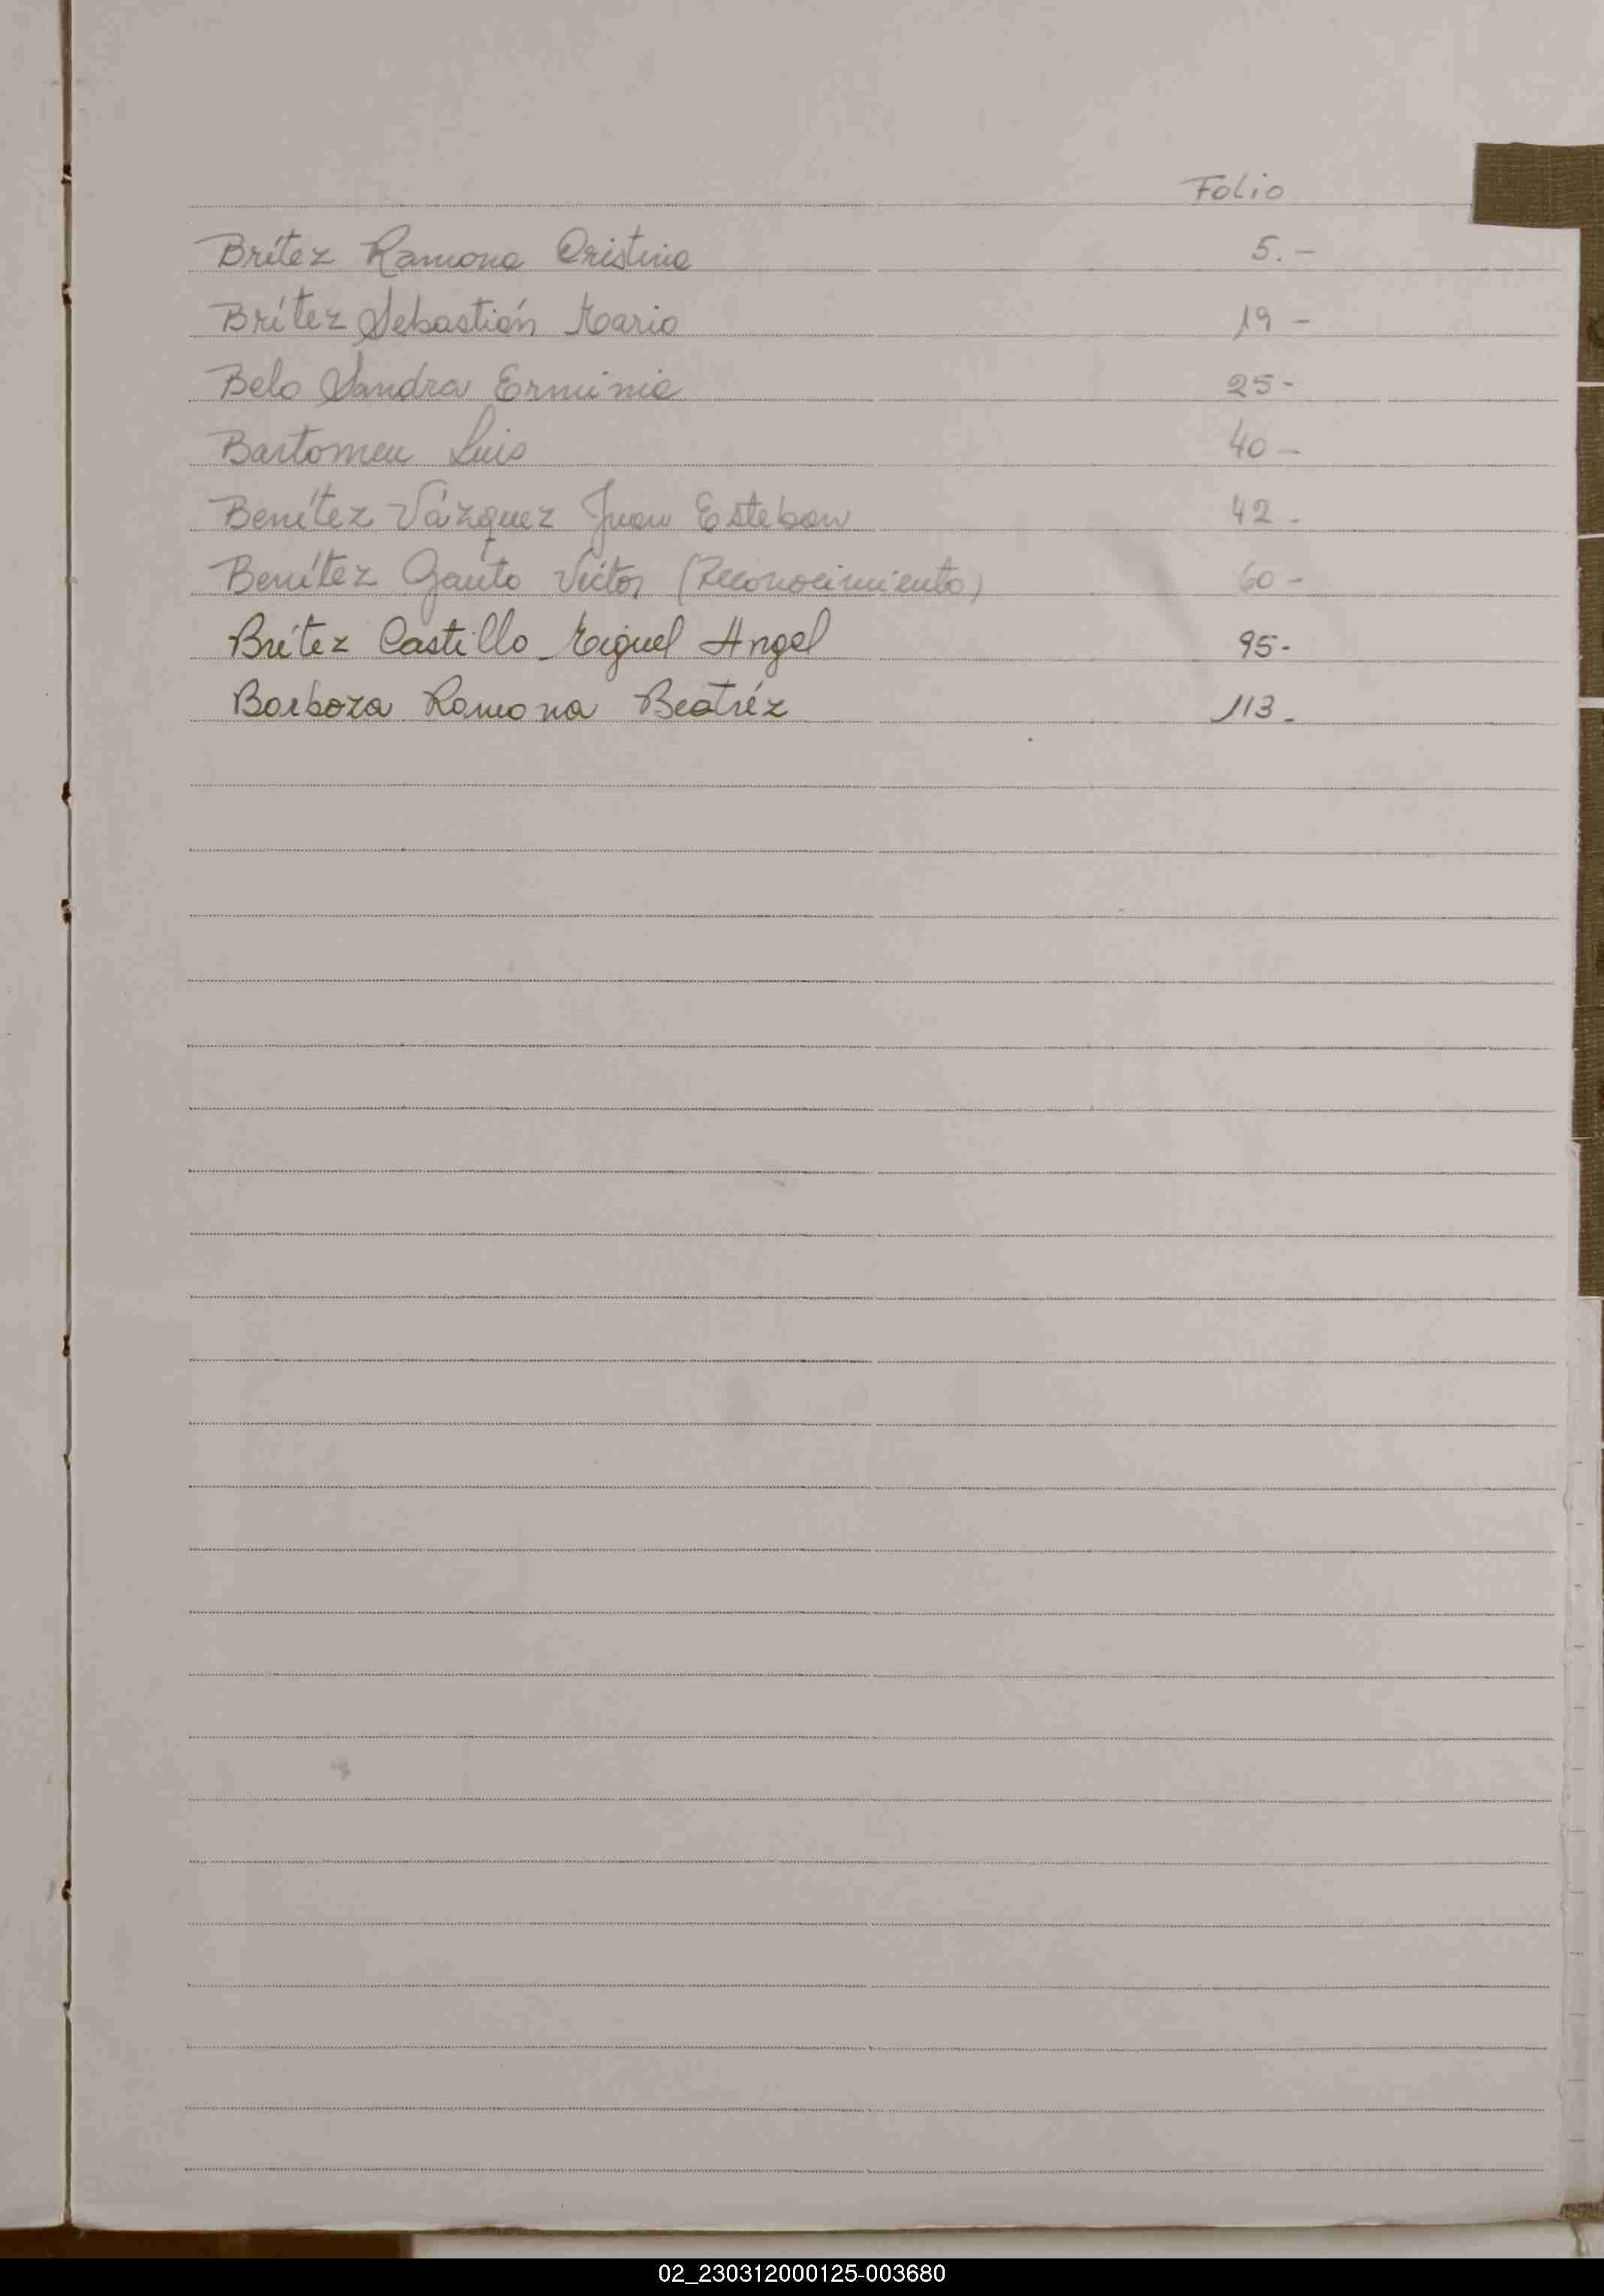 Folio
Brítez Ramona Cristina 5.-
Brítez Sebastián Mario 19 -
Belo Sandra Erminia 25-
Bartomeu Luis 40 -
Benítez Vázquez Juan Esteban 42 -
Benítez Gauto Victor (Reconocimiento) 60 -
Brítez Castillo Miguel Angel 95-
Barboza Ramona Beatréz 113 -
02_230312000125-003680